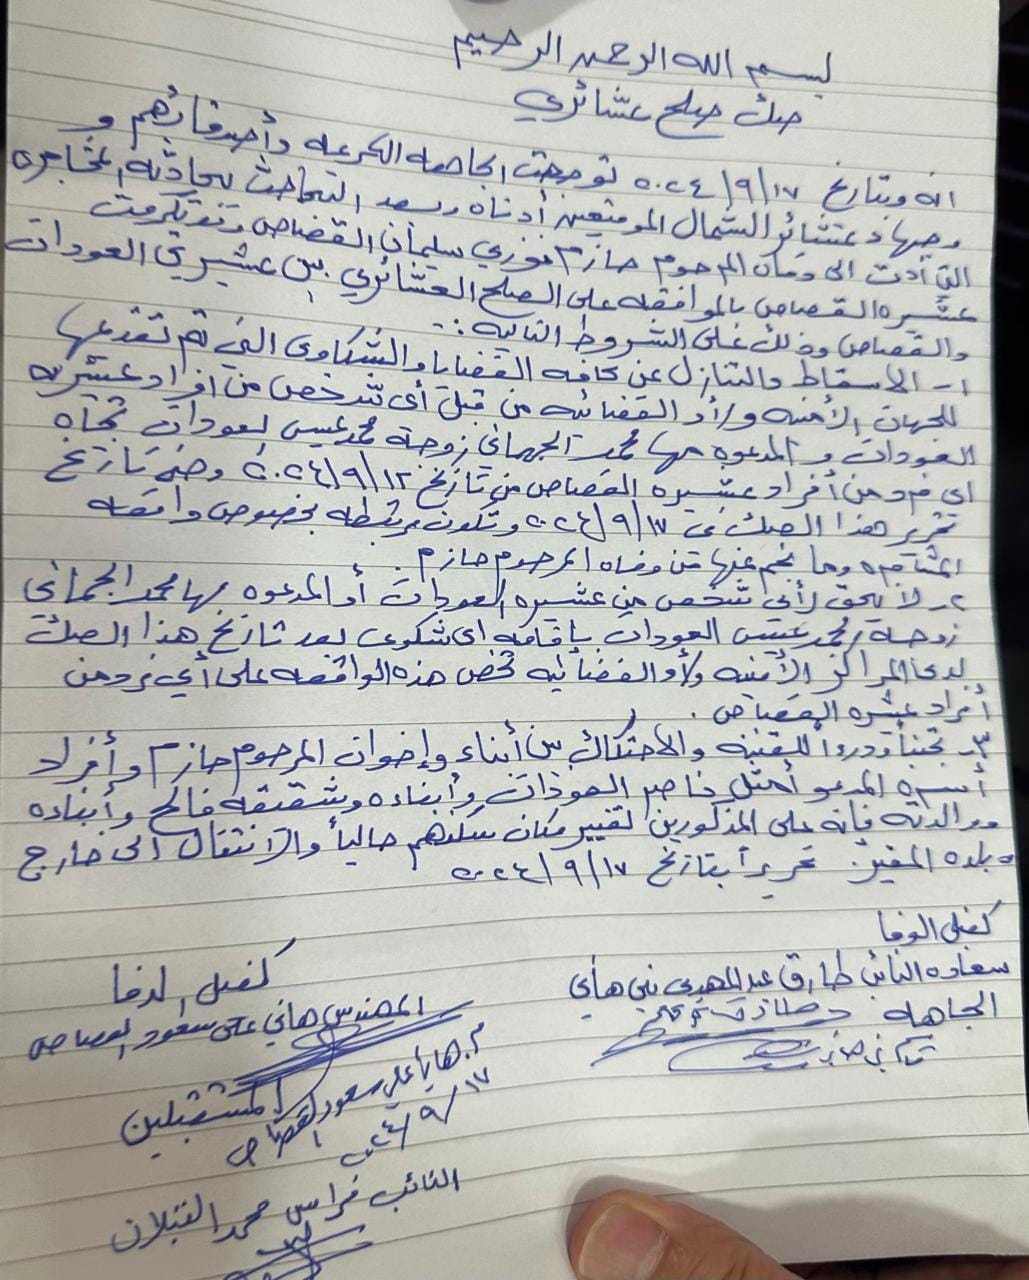 بسم الله الرحمن الرحيم
صك صلح عشائري
انه وبتاريخ ٢٠٢٤/٩/١٧ توجهت الجاهه الكريمه وأصدقائهم و
وجهاء عشائر الشمال الموقعين أدناه وبعد التباحث بحادثه المشاجره
التي أدت الى وفاة المرحوم حازم فوزي سلمان القصاص وقد تكرمت
عشيره القصاص بالموافقه على الصلح العشائري بين عشيرتي العودات
والقصاص وذلك على الشروط التاليه :-
١- الاسقاط والتنازل عن كافه القضايا والشكاوى التي تم تقديمها
للجهات الأمنيه و/أو القضائيه من قبل أي شخص من افراد عشيره
العودات و المدعوه مها محمد الجهماني زوجة محمد عيسى لعودات تجاه
اي فرد من أفراد عشيره القصاص من تاريخ ٢٠٢٤/٩/١٢ وحتى تاريخ
تحرير هذا الصك في ٢٠٢٤/٩/١٧ وتكون مرتبطه بخصوص واقعه
المشاجره وما نجم عنها من وفاه المرحوم حازم .
٢- لا يحق لأي شخص من عشيره العودات أو المدعوه مها محمد الجهماني
زوجة محمد عيسى العودات بإقامه اي شكوى بعد تاريخ هذا الصك
لدى المراكز الأمنيه و/أو القضائيه تخص هذه الواقعه على أي فرد من
أفراد عشيره القصاص .
٣- تجنباً ودرءاً للفتنه والاحتكاك بين أبناء وإخوان المرحوم حازم وأفراد
أسره المدعو أمثل ناصر العودات وأبناءه وشقيقه فالح وأبناءه
ووالدته فإنه على المذكورين تغيير مكان سكنهم حالياً والانتقال الى خارج
بلده المغير. تحريراً بتاريخ ٢٠٢٤/٩/١٧
كفيل الوفا
سعاده النائب طارق عبدالمهدي بني هاني
الجاهه
كفيل الدفا
المهندس هاني علي سعود القصاص
المستقبلين
م. هاني علي سعود القصاص
٢٠٢٤/٩/١٧
النائب فراس محمد القبلان